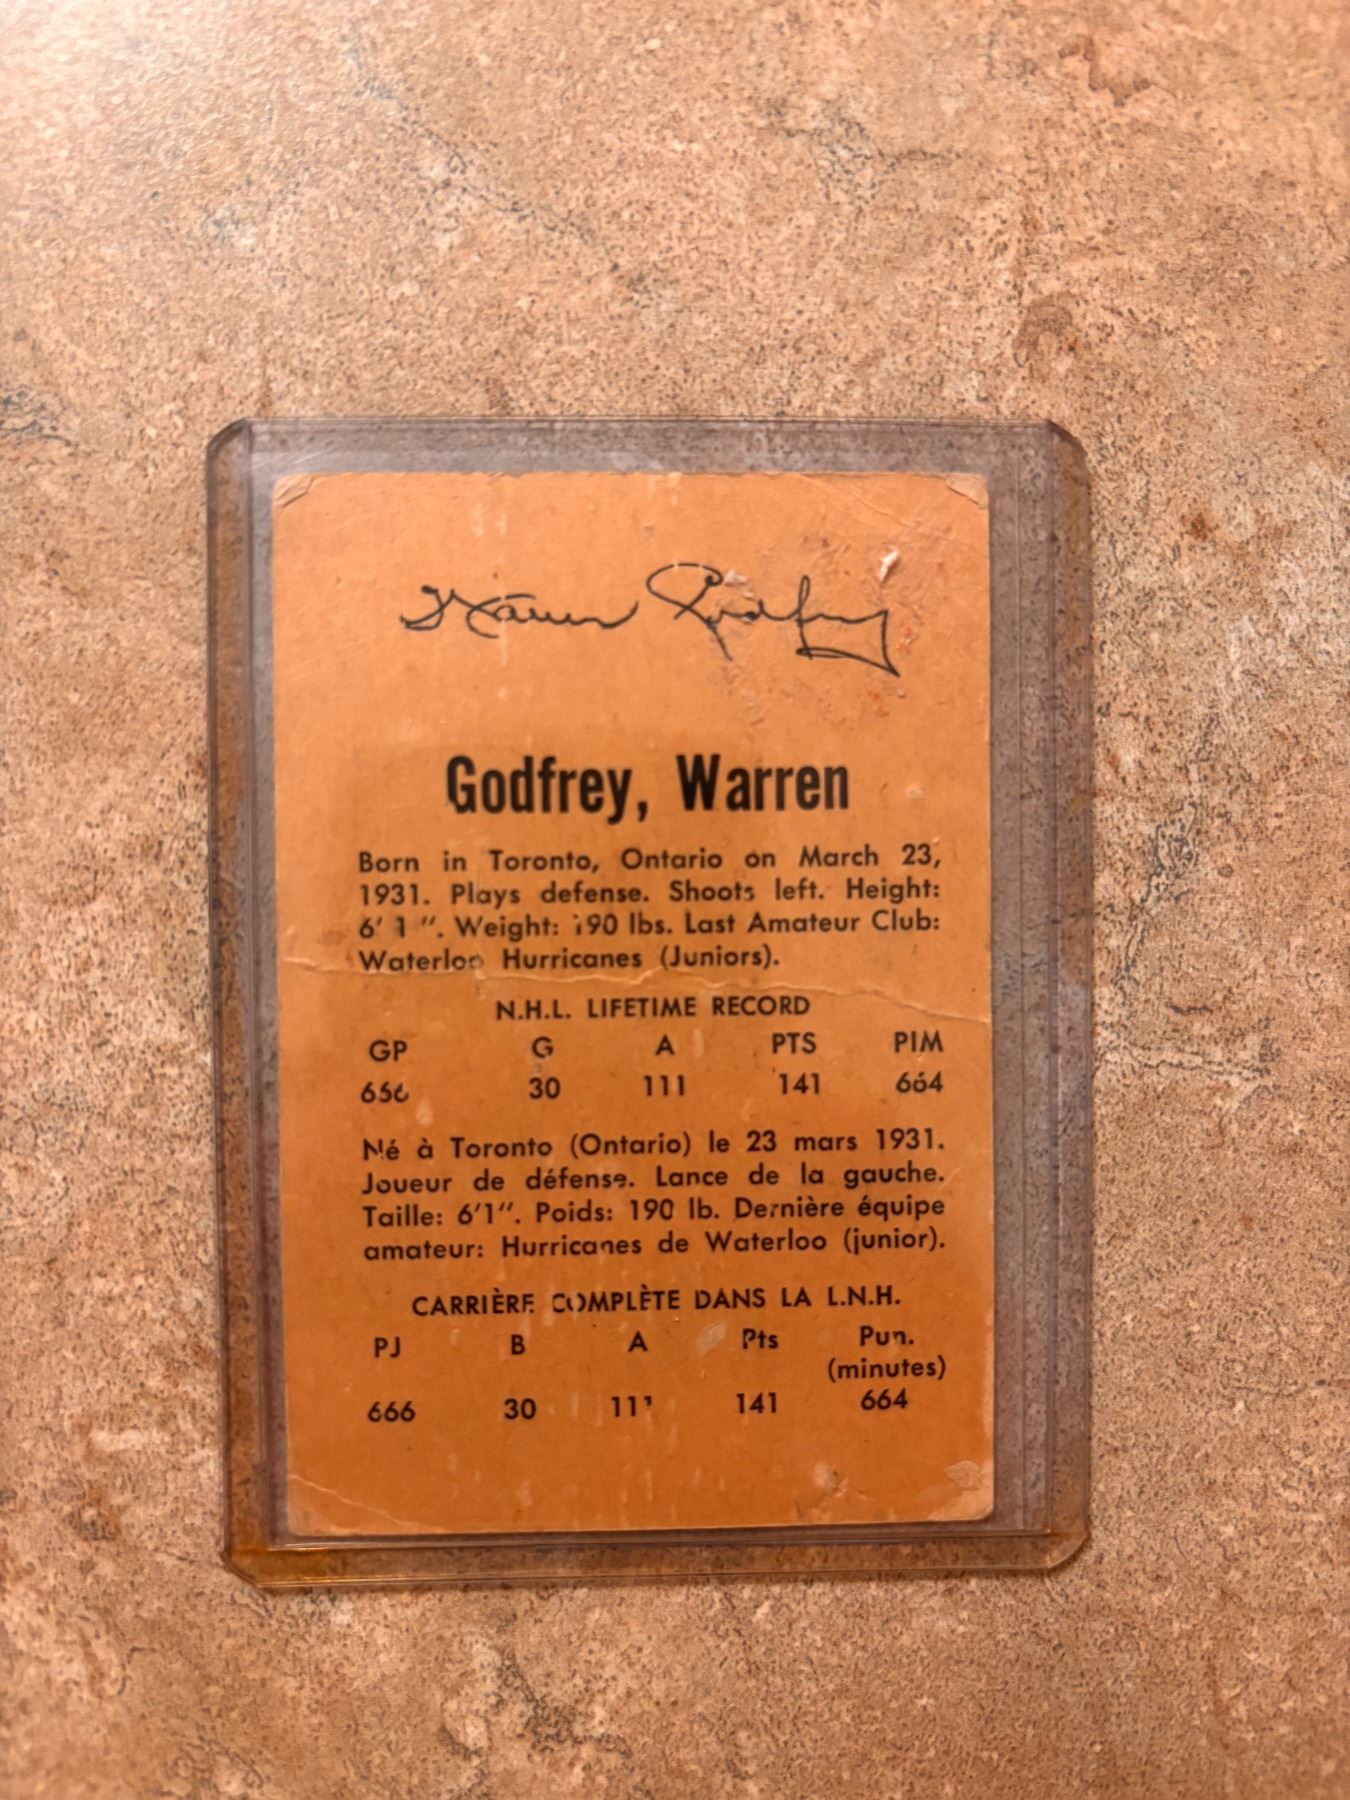 Warren Godfrey
Godfrey, Warren
Born in Toronto, Ontario on March 23,
1931. Plays defense. Shoots left. Height:
6' 1 ". Weight: 190 lbs. Last Amateur Club:
Waterloo Hurricanes (Juniors).
N.H.L. LIFETIME RECORD
GP G A PTS PIM
656 30 111 141 664
Né à Toronto (Ontario) le 23 mars 1931.
Joueur de défense. Lance de la gauche.
Taille: 6'1". Poids: 190 lb. Dernière équipe
amateur: Hurricanes de Waterloo (junior).
CARRIÈRE COMPLÈTE DANS LA L.N.H.
PJ B A Pts Pun.
(minutes)
666 30 111 141 664